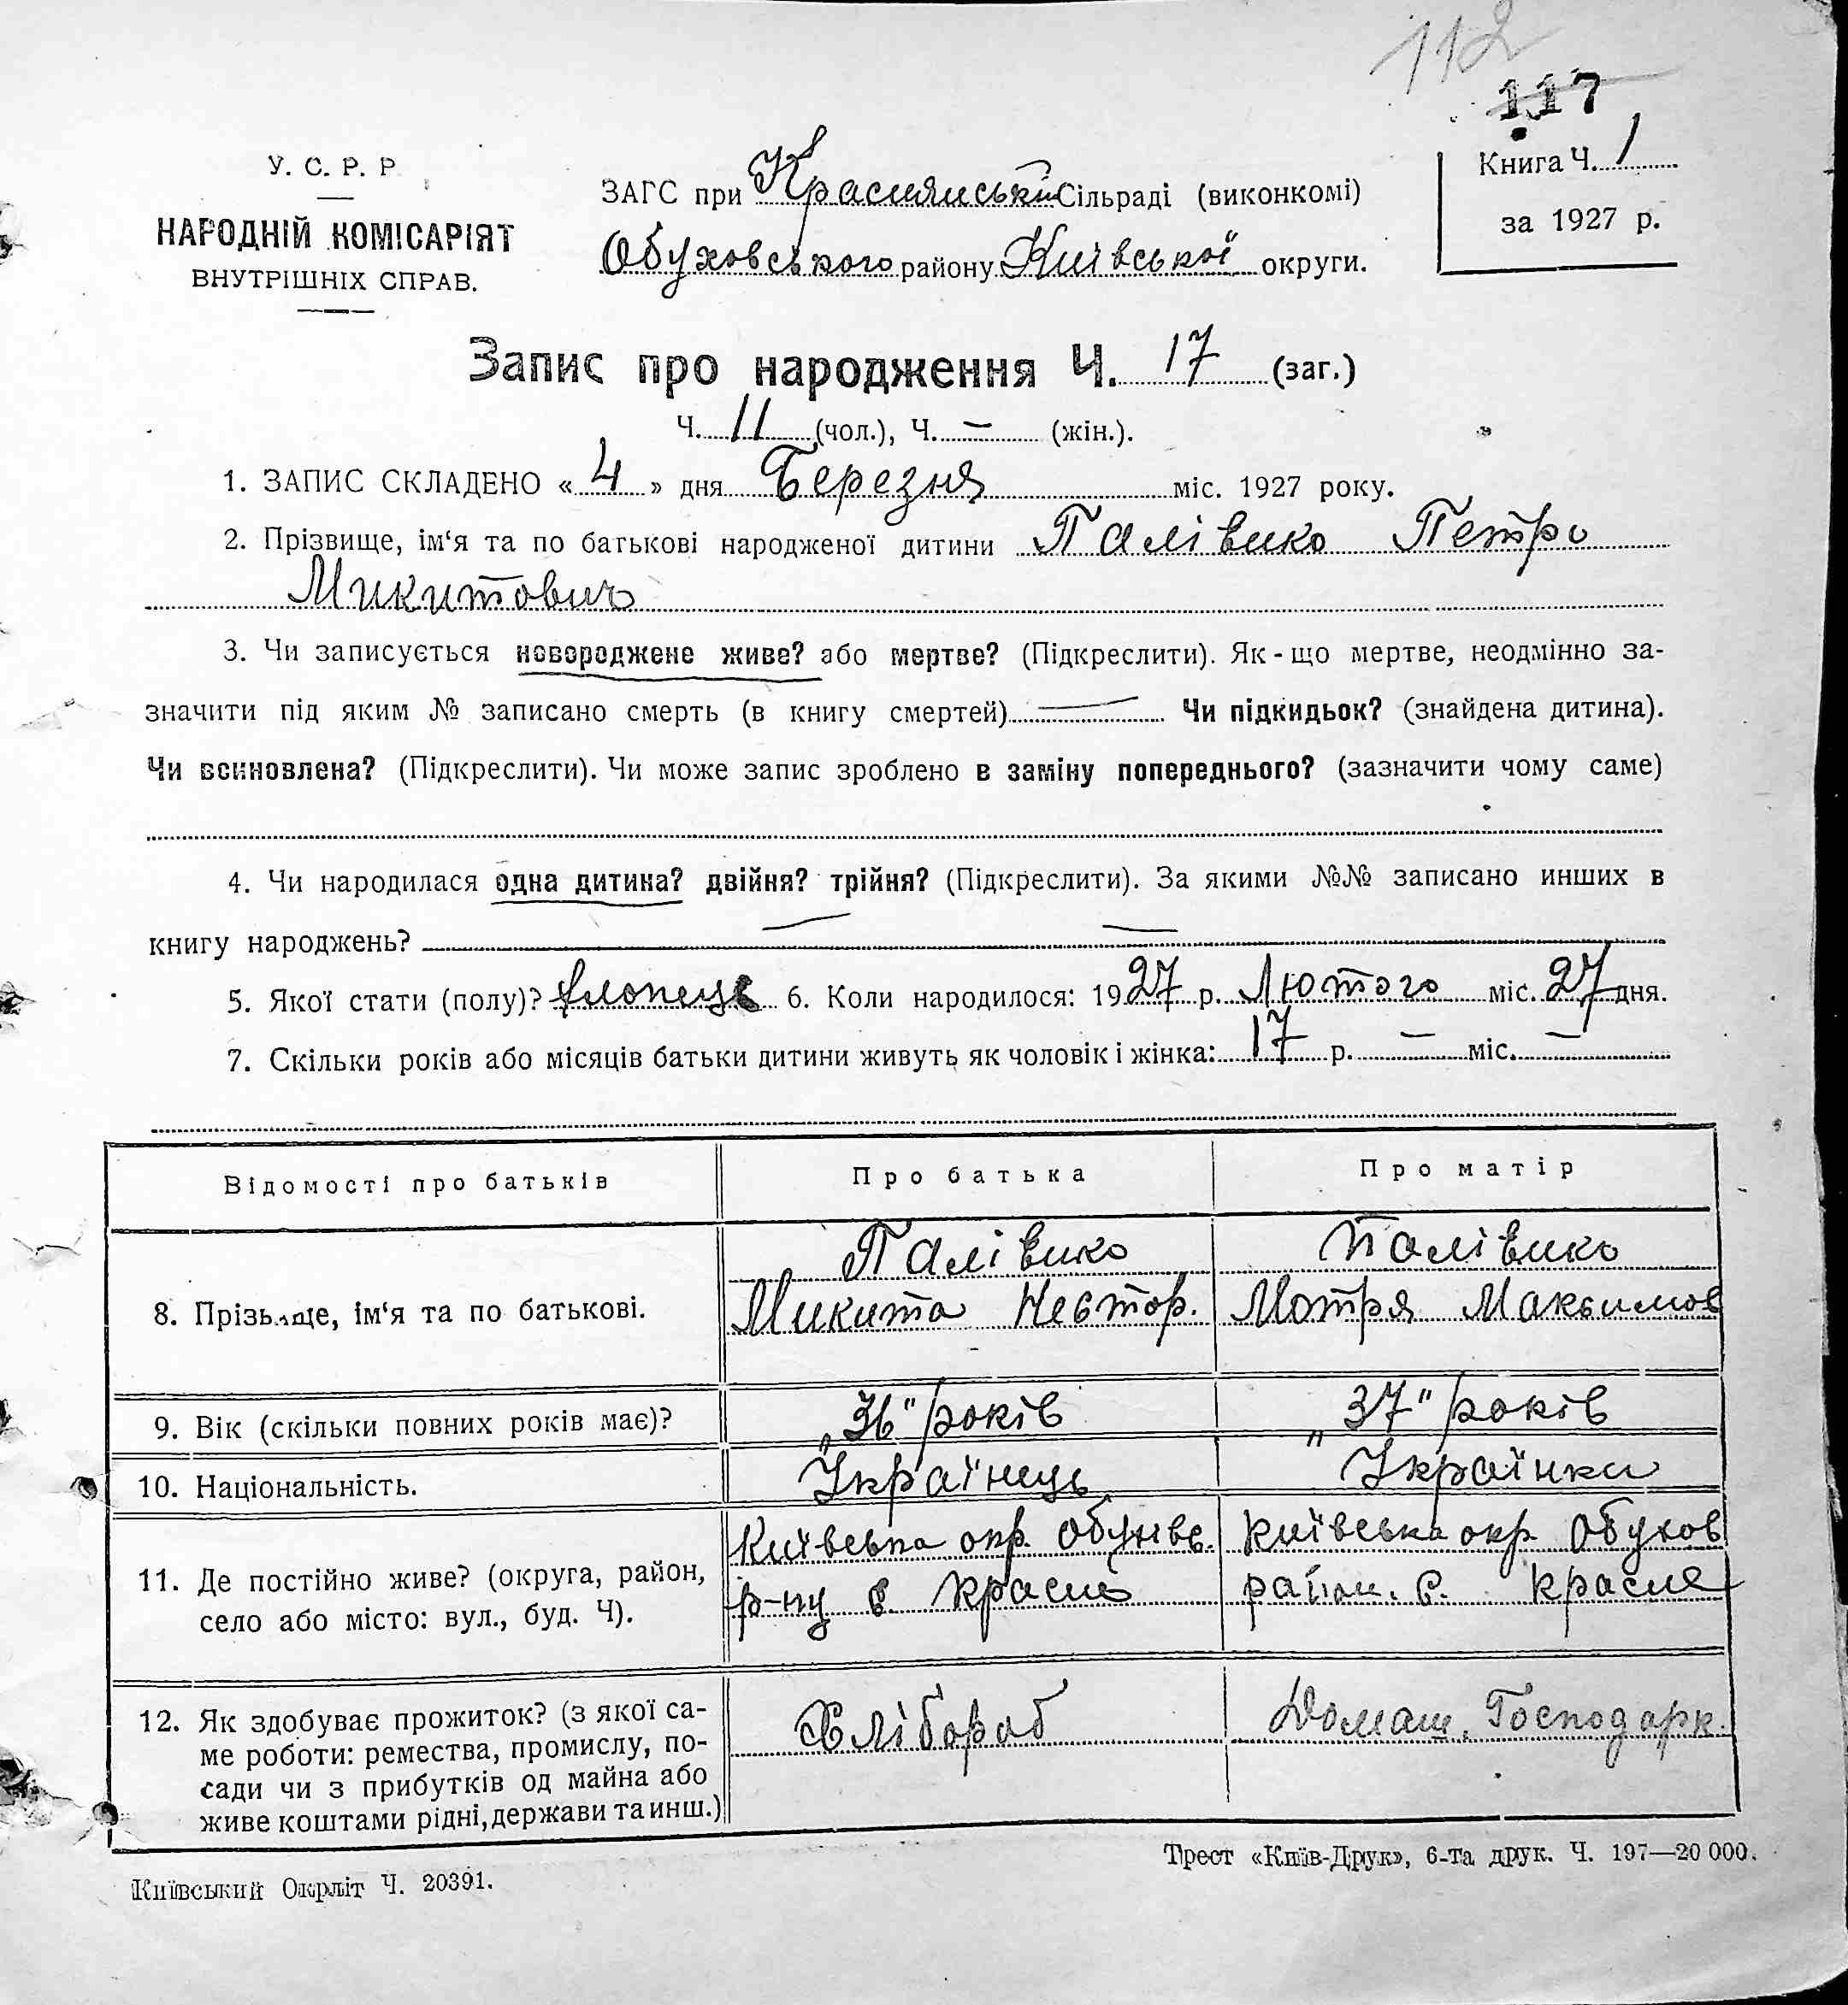 112
117
У. С. Р. Р
НАРОДНІЙ КОМІСАРІЯТ
ВНУТРІШНІХ СПРАВ.
ЗАГС при Краснянській Сільраді (виконкомі)
Обуховського району Київської округи.
Книга Ч. 1
за 1927 р.
Запис про народження Ч. 17 (заг.)
Ч. 11 (чол.), Ч. — (жін.).
1. ЗАПИС СКЛАДЕНО « 4 » дня Березня міс. 1927 року.
2. Прізвище, ім‘я та по батькові народженої дитини Палівико Петро
Микитович
3. Чи записується новороджене живе? або мертве? (Підкреслити). Як-що мертве, неодмінно за-
значити під яким № записано смерть (в книгу смертей) — Чи підкидьок? (знайдена дитина).
Чи всиновлена? (Підкреслити). Чи може запис зроблено в заміну попереднього? (зазначити чому саме)
4. Чи народилася одна дитина? двійня? трійня? (Підкреслити). За якими №№ записано инших в
книгу народжень? — —
5. Якої стати (полу)? хлопець 6. Коли народилося: 1927 р. Лютого міс. 27 дня.
7. Скільки років або місяців батьки дитини живуть як чоловік і жінка: 17 р. — міс. —
Відомості про батьків Про батька Про матір
Палівико Палівико
8. Прізьвище, ім‘я та по батькові. Микита Нестор. Мотря Максимов
9. Вік (скільки повних років має)? „36" років „37" років
10. Національність. Українець Українка
Київська окр. Обухівс. Київська окр. Обухов
11. Де постійно живе? (округа, район, р-ну с. Красне район. с. Красне
село або місто: вул., буд. Ч).
12. Як здобуває прожиток? (з якої са- Хлібороб Домаш. Господарк.
ме роботи: ремества, промислу, по-
сади чи з прибутків од майна або
живе коштами рідні, держави та инш.)
Київський Окрліт Ч. 20391.
Трест «Київ-Друк», 6-та друк. Ч. 197—20 000.